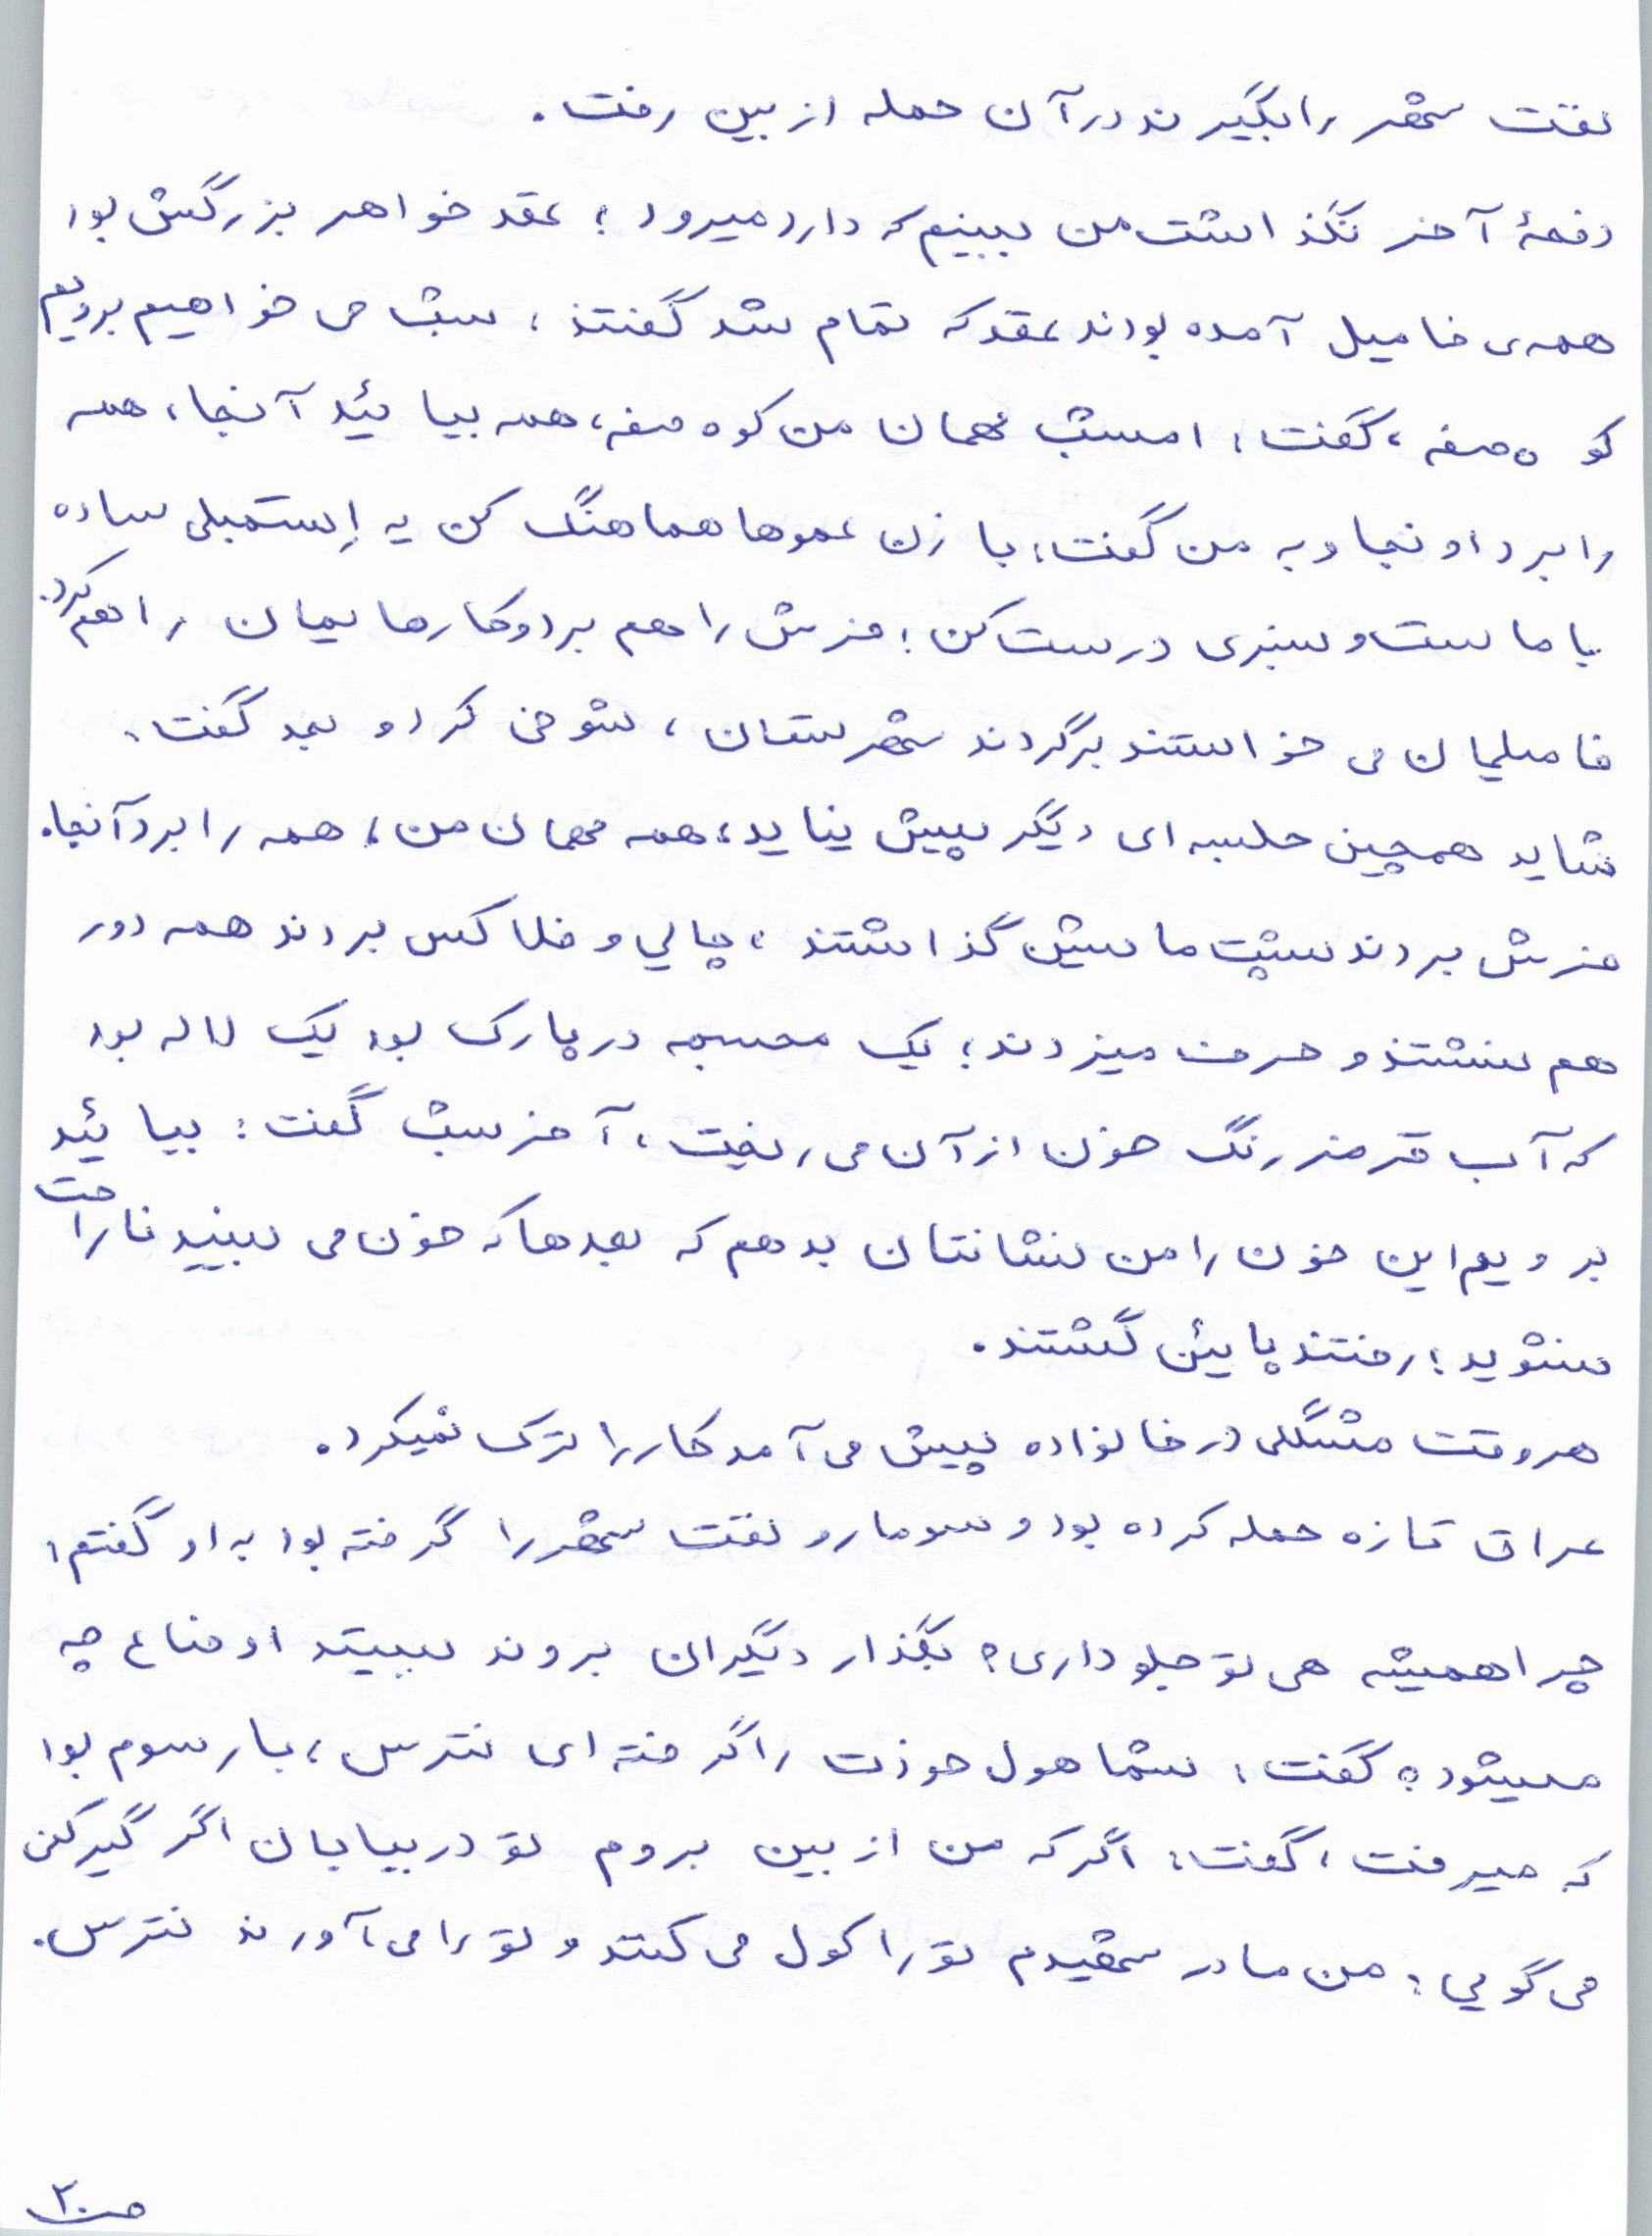 نفت شهر را بگیرند در آن حمله از بین رفت.
دفعهٔ آخر نگذاشت من ببینم که دارد میرود؛ عقد خواهر بزرگش بود
همه‌ی فامیل آمده بودند، عقد که تمام شد گفتند: شب می خواهیم برویم
کوه صفه، گفت: امشب مهمان من کوه صفه، همه بیائید آنجا، همه
را برد اونجا و به من گفت: با زن عموها هماهنگ کن یه اِستمبلی ساده
با ماست و سبزی درست کن؛ فرش را هم برد و کارهایمان را هم کرد.
فامیلمان می خواستند برگردند شهرستان، شوخی کرد و بعد گفت:
شاید همچین جلسه ای دیگر پیش نیاید، همه مهمان من، همه را برد آنجا.
فرش بردند پشت ماشین گذاشتند، چایی و فلاکس بردند همه دور
هم نشستند و حرف میزدند؛ یک مجسمه در پارک بود یک لاله بود
که آب قرمز رنگ خون از آن می ریخت، آخر شب گفت: بیائید
برویم این خون را من نشانتان بدهم که بعدها که خون می بینید ناراحت
نشوید؛ رفتند پایین گشتند.
هر وقت مشگلی در خانواده پیش می آمد کار را ترک نمیکرد.
عراق تازه حمله کرده بود و سومار و نفت شهر را گرفته بود به او گفتم:
چرا همیشه هی تو جلو داری؟ بگذار دیگران بروند ببینند اوضاع چه
میشود؟ گفت: شما هول خودت را گرفته ای نترس، بار سوم بود
که میرفت، گفت: اگر که من از بین بروم تو در بیابان اگر گیر کنی
می گویی: من مادر شهیدم تو را کول می کنند و تو را می آورند نترس.
ص ۲۰